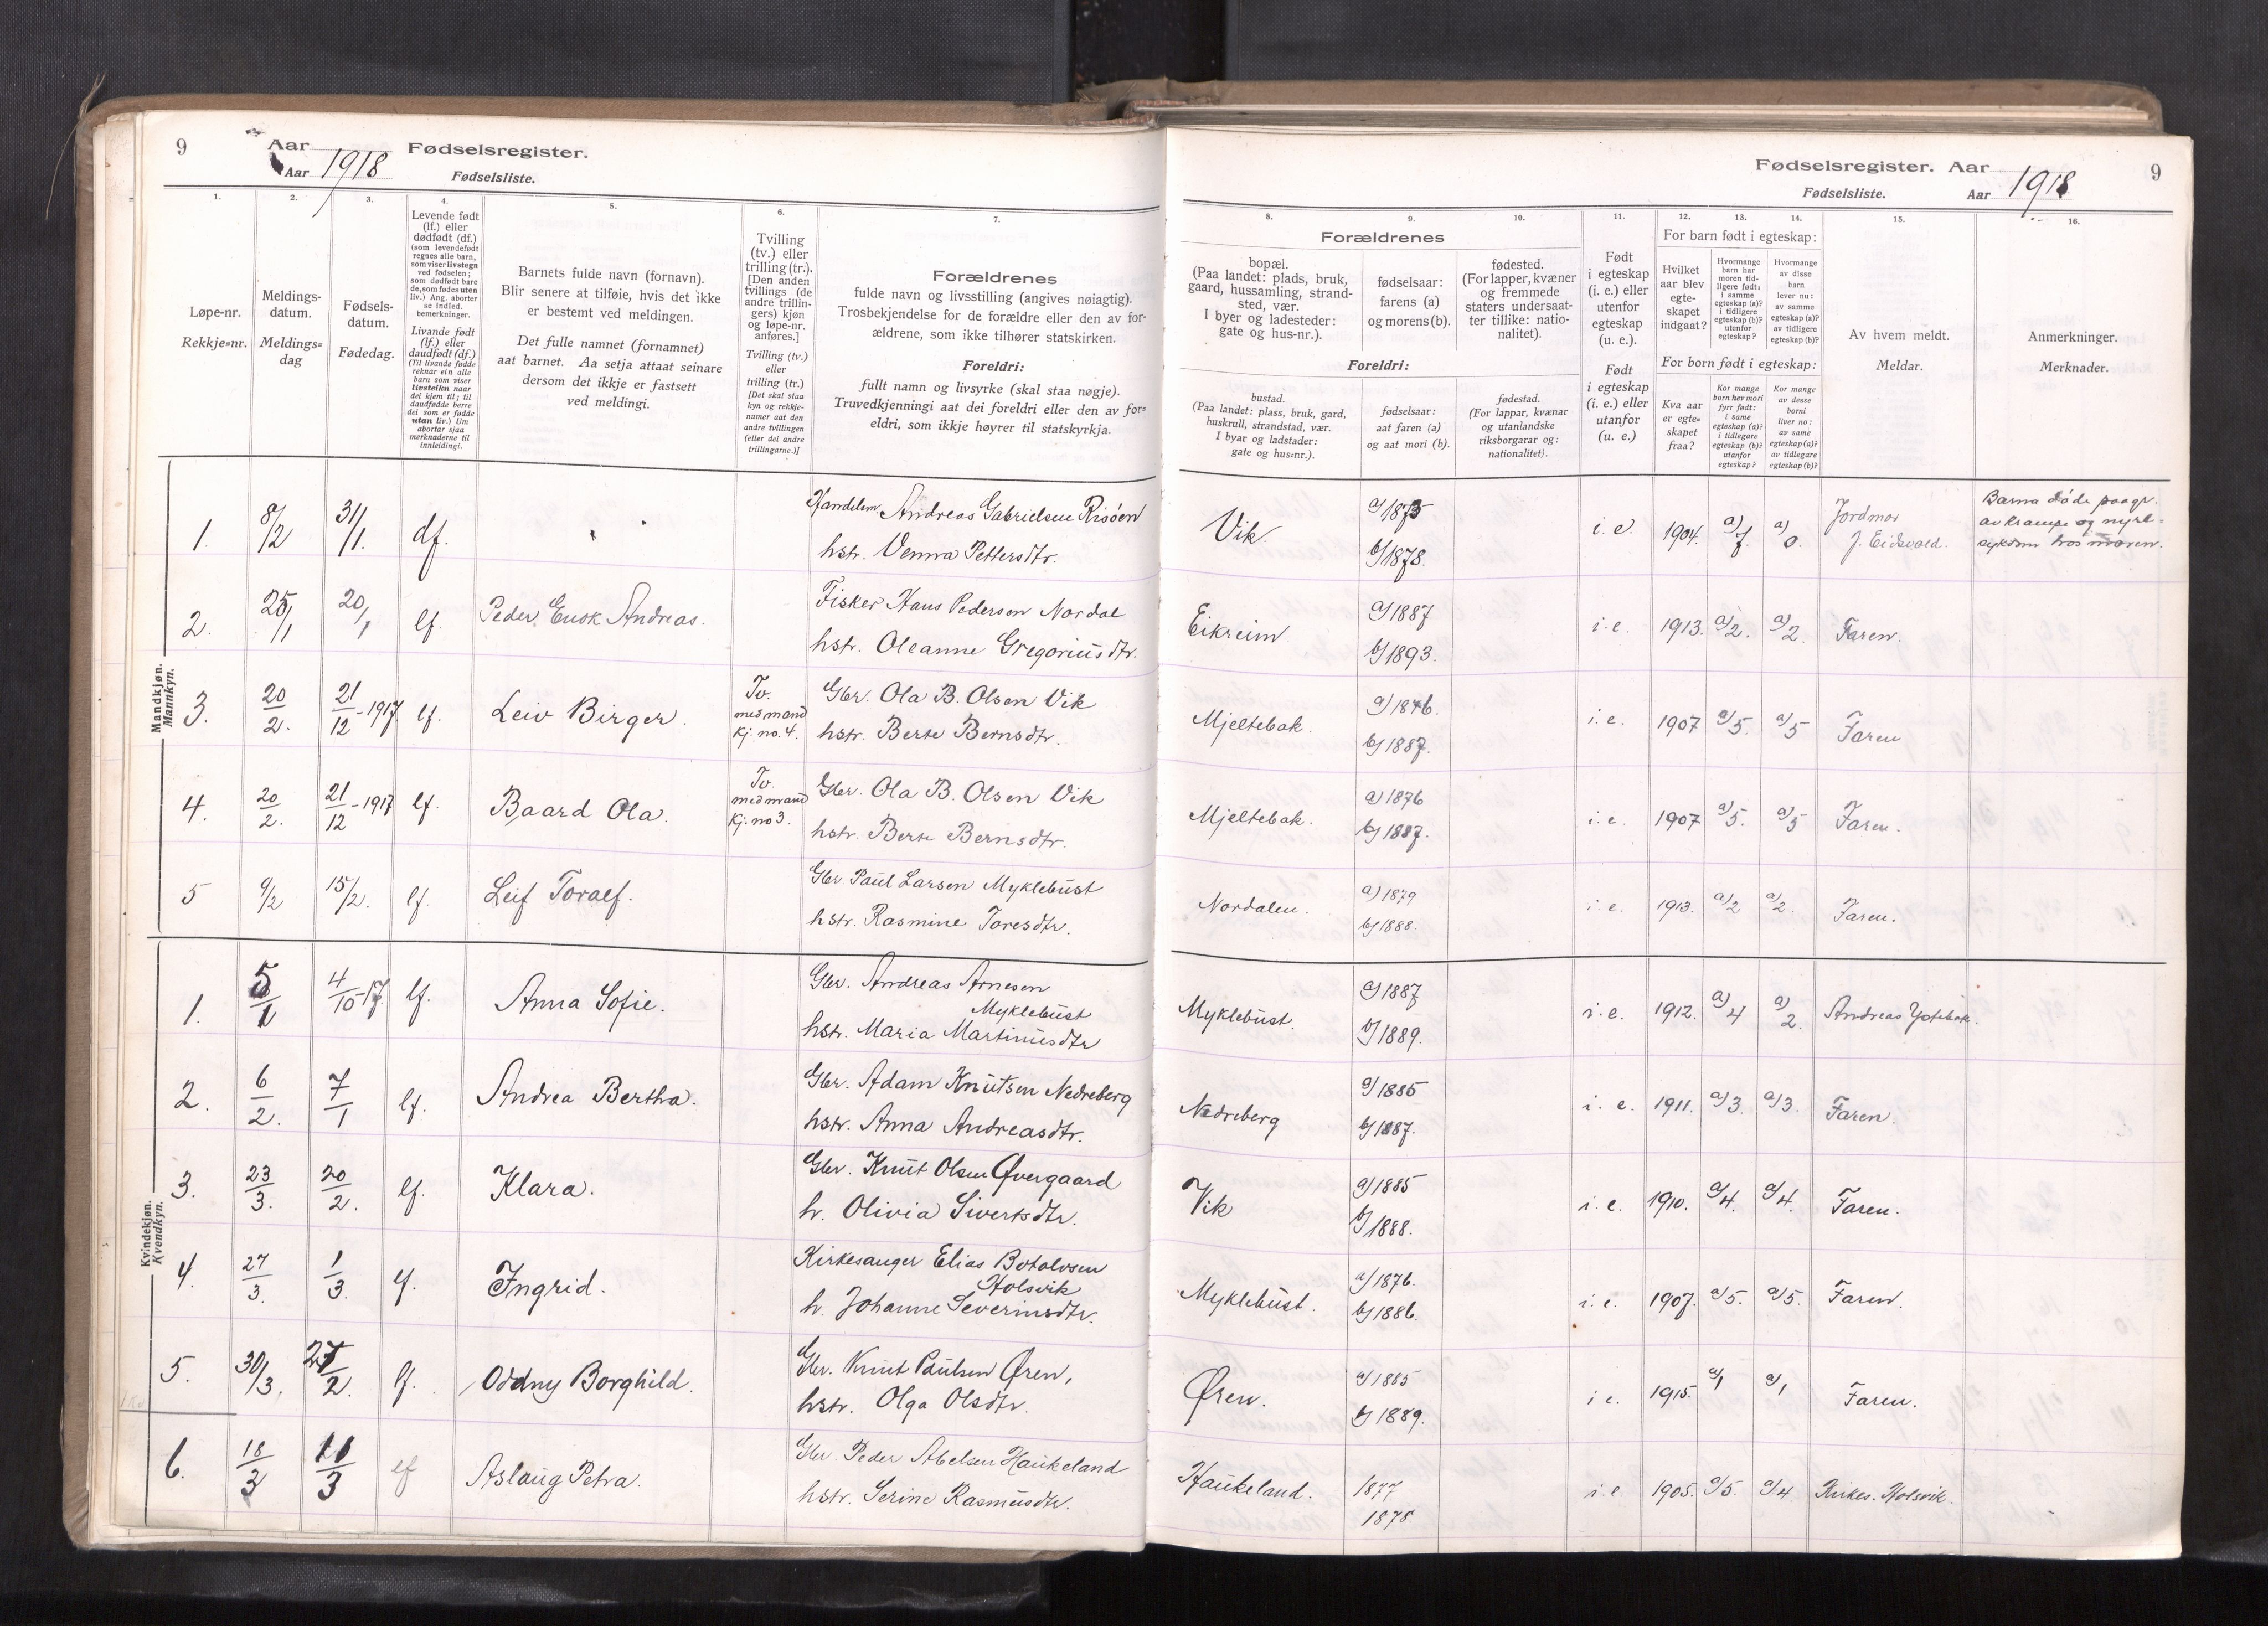 9
Aar
Fødselsregister.
Aar 1918
Fødselsliste.
1.
2.
3.
4.
5.
6.
7.
Løpe-nr.
Rekkje-nr.
Meldings-
datum.
Meldings-
dag
Fødsels-
datum.
Fødedag.
Levende født
(lf.) eller
dødfødt (df.)
(som levendefødt
regnes alle barn,
som viser livstegn
ved fødselen;
som dødfødt bare
de, som fødes uten
liv.) Ang. aborter
se indled.
bemerkninger.
Livande født
(lf.) eller
daudfødt (df.)
(Til livande fødde
reknar ein alle
barn som viser
livsteikn naar
dei kjem til; til
daudfødde berre
dei som er fødde
utan liv.) Um
abortar sjaa
merknaderne til
innleidingi.
Barnets fulde navn (fornavn).
Blir senere at tilføie, hvis det ikke
er bestemt ved meldingen.
Det fulle namnet (fornamnet)
aat barnet. Aa setja attaat seinare
dersom det ikkje er fastsett
ved meldingi.
Tvilling
(tv.) eller
trilling (tr.).
[Den anden
tvillings (de
andre trillin-
gers) kjøn
og løpe-nr.
anføres.]
Tvilling (tv.)
eller
trilling (tr.)
[Det skal staa
kyn og rekkje-
numer aat den
andre tvillingen
(eller dei andre
trillingarne.)]
Forældrenes
fulde navn og livsstilling (angives nøiagtig).
Trosbekjendelse for de forældre eller den av for-
ældrene, som ikke tilhører statskirken.
Foreldri:
fullt namn og livsyrke (skal staa nøgje).
Truvedkjenningi aat dei foreldri eller den av for-
eldri, som ikkje høyrer til statskyrkja.
Mandkjøn.
Mannkyn.
1. 8/2 31/1. df. Handelsm. Andreas Gabrielsen Risøen
hstr. Venna Pettersdtr.
2. 25/1 20/1 lf. Peder Enok Andreas. Fisker Hans Pedersen Nordal
hstr. Oleanne Gregoriusdtr.
3. 20/2. 21/12-1917 lf. Leiv Birger. Tv.
med mand
kj. no. 4. Gbr. Ola B. Olsen Vik
hstr. Berte Bernsdtr.
4. 20/2. 21/12-1917 lf. Baard Ola. Tv.
med mand
kj. no 3. Gbr. Ola B. Olsen Vik
hstr. Berte Bernsdtr.
5 9/2 15/2. lf. Leif Toralf. Gbr. Paul Larsen Myklebust
hstr. Rasmine Toresdtr.
Kvindekjøn.
Kvendkyn.
1. 5/1 4/10-17 lf. Anna Sofie. Gbr. Andreas Arnesen
Myklebust
hstr. Maria Martinusdtr
2. 6/2. 7/1 lf. Andrea Bertha. Gbr. Adam Knutsen Nedreberg
hstr. Anna Andreasdtr.
3. 23/3. 20/2. lf. Klara. Gbr. Knut Olsen Øvergaard
h. Olivia Sivertsdtr.
4. 27/3. 1/3. lf. Ingrid. Kirkesanger Elias Botolvsen
Holsvik
h. Johanne Severinsdtr.
5. 30/3. 27/2. lf. Oddny Borghild. Gbr. Knut Paulsen Øren,
hstr. Olga Olsdtr.
6. 18/3 11/3 lf Aslaug Petra. Gbr. Peder Abelsen Haukeland
hstr. Serine Rasmusdtr.
Fødselsregister. Aar
9
Fødselsliste.
Aar 1918
8.
9.
10.
11.
12.
13.
14.
15.
16.
Forældrenes
bopæl.
(Paa landet: plads, bruk,
gaard, hussamling, strand-
sted, vær.
I byer og ladesteder:
gate og hus-nr.).
fødselsaar:
farens (a)
og morens (b).
fødested.
(For lapper, kvæner
og fremmede
staters undersaat-
ter tillike: natio-
nalitet).
Foreldri:
bustad.
(Paa landet: plass, bruk, gard,
huskrull, strandstad, vær.
I byar og ladstader:
gate og hus-nr.).
fødselsaar:
aat faren (a)
og aat mori (b).
fødestad.
(For lappar, kvænar
og utanlandske
riksborgarar og:
nationalitet).
Født
i egteskap
(i. e.) eller
utenfor
egteskap
(u. e.).
Født
i egteskap
(i. e.) eller
utanfor
(u. e.)
For barn født i egteskap:
Hvilket
aar blev
egte-
skapet
indgaat?
Hvormange
barn har
moren tid-
ligere født:
i samme
egteskap (a)?
i tidligere
egteskap (b)?
utenfor
egteskap?
Hvormange
av disse
barn
lever nu:
av samme
egteskap (a)?
av tidligere
egteskap (b)?
For born født i egteskap:
Kva aar
er egte-
skapet
fraa?
Kor mange
born hev mori
fyrr født:
i same
egteskap (a)?
i tidlegare
egteskap (b)?
utanfor
egteskap?
Kor mange
av desse
borni
liver no:
av same
egteskap (a)?
av tidlegare
egteskap (b)?
Av hvem meldt.
Meldar.
Anmerkninger.
Merknader.
Vik. a/1873 b/1878. i. e. 1904. a/7. a/0. Jordmor
J. Eidsvold. Barna døde paagr.
av krampe og nyre-
sykdom hos moren.
Eikreim a/1887 b/1893. i. e. 1913. a/2. a/2. Faren.
Mjeltebak. a/1876. b/1887. i. e. 1907 a/5. a/5 Faren
Mjeltebak. a/1876 b/1887. i. e. 1907 a/5. a/5 Faren.
Nordalen. a/1879 b/1888. i. e. 1913. a/2 a/2. Faren.
Myklebust. a/1887 b/1889. i. e. 1912. a/4 a/2. Andreas
Nedreberg a/1885 b/1887. i. e. 1911. a/3. a/3. Faren.
Vik a/1885 b/1888. i. e. 1910. a/4. a/4. Faren.
Myklebust. a/1876. b/1886. i. e. 1907. a/5. a/5. Faren.
Øren. a/1885 b/1889. i e. 1915. a/1 a/1 Faren.
Haukeland. 1877 1878. i. e 1905. a/5. a/4. Kirkes. Holsvik.